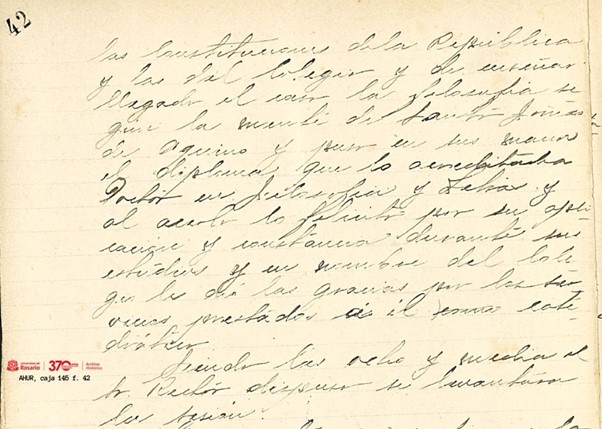 42
las Constituciones de la República
y las del Colegio y de enseñar
llegado el caso la filosofía se
gún la mente de Santo Tomás
de Aquino y puso en sus manos
el diploma que lo acreditaba
Doctor en Filosofía y Letras y
al acerlo lo felicitó por su apli
cacion y constancia durante sus
estudios y en nombre del Cole
gio le dió las gracias por los ser
vicios prestados a él como cate
drático.
Siendo las ocho y media el
Sr. Rector dispuso se levantara
la sesión.
Universidad del
Rosario
370
Archivo
Histórico
AHUR, caja 145 f. 42